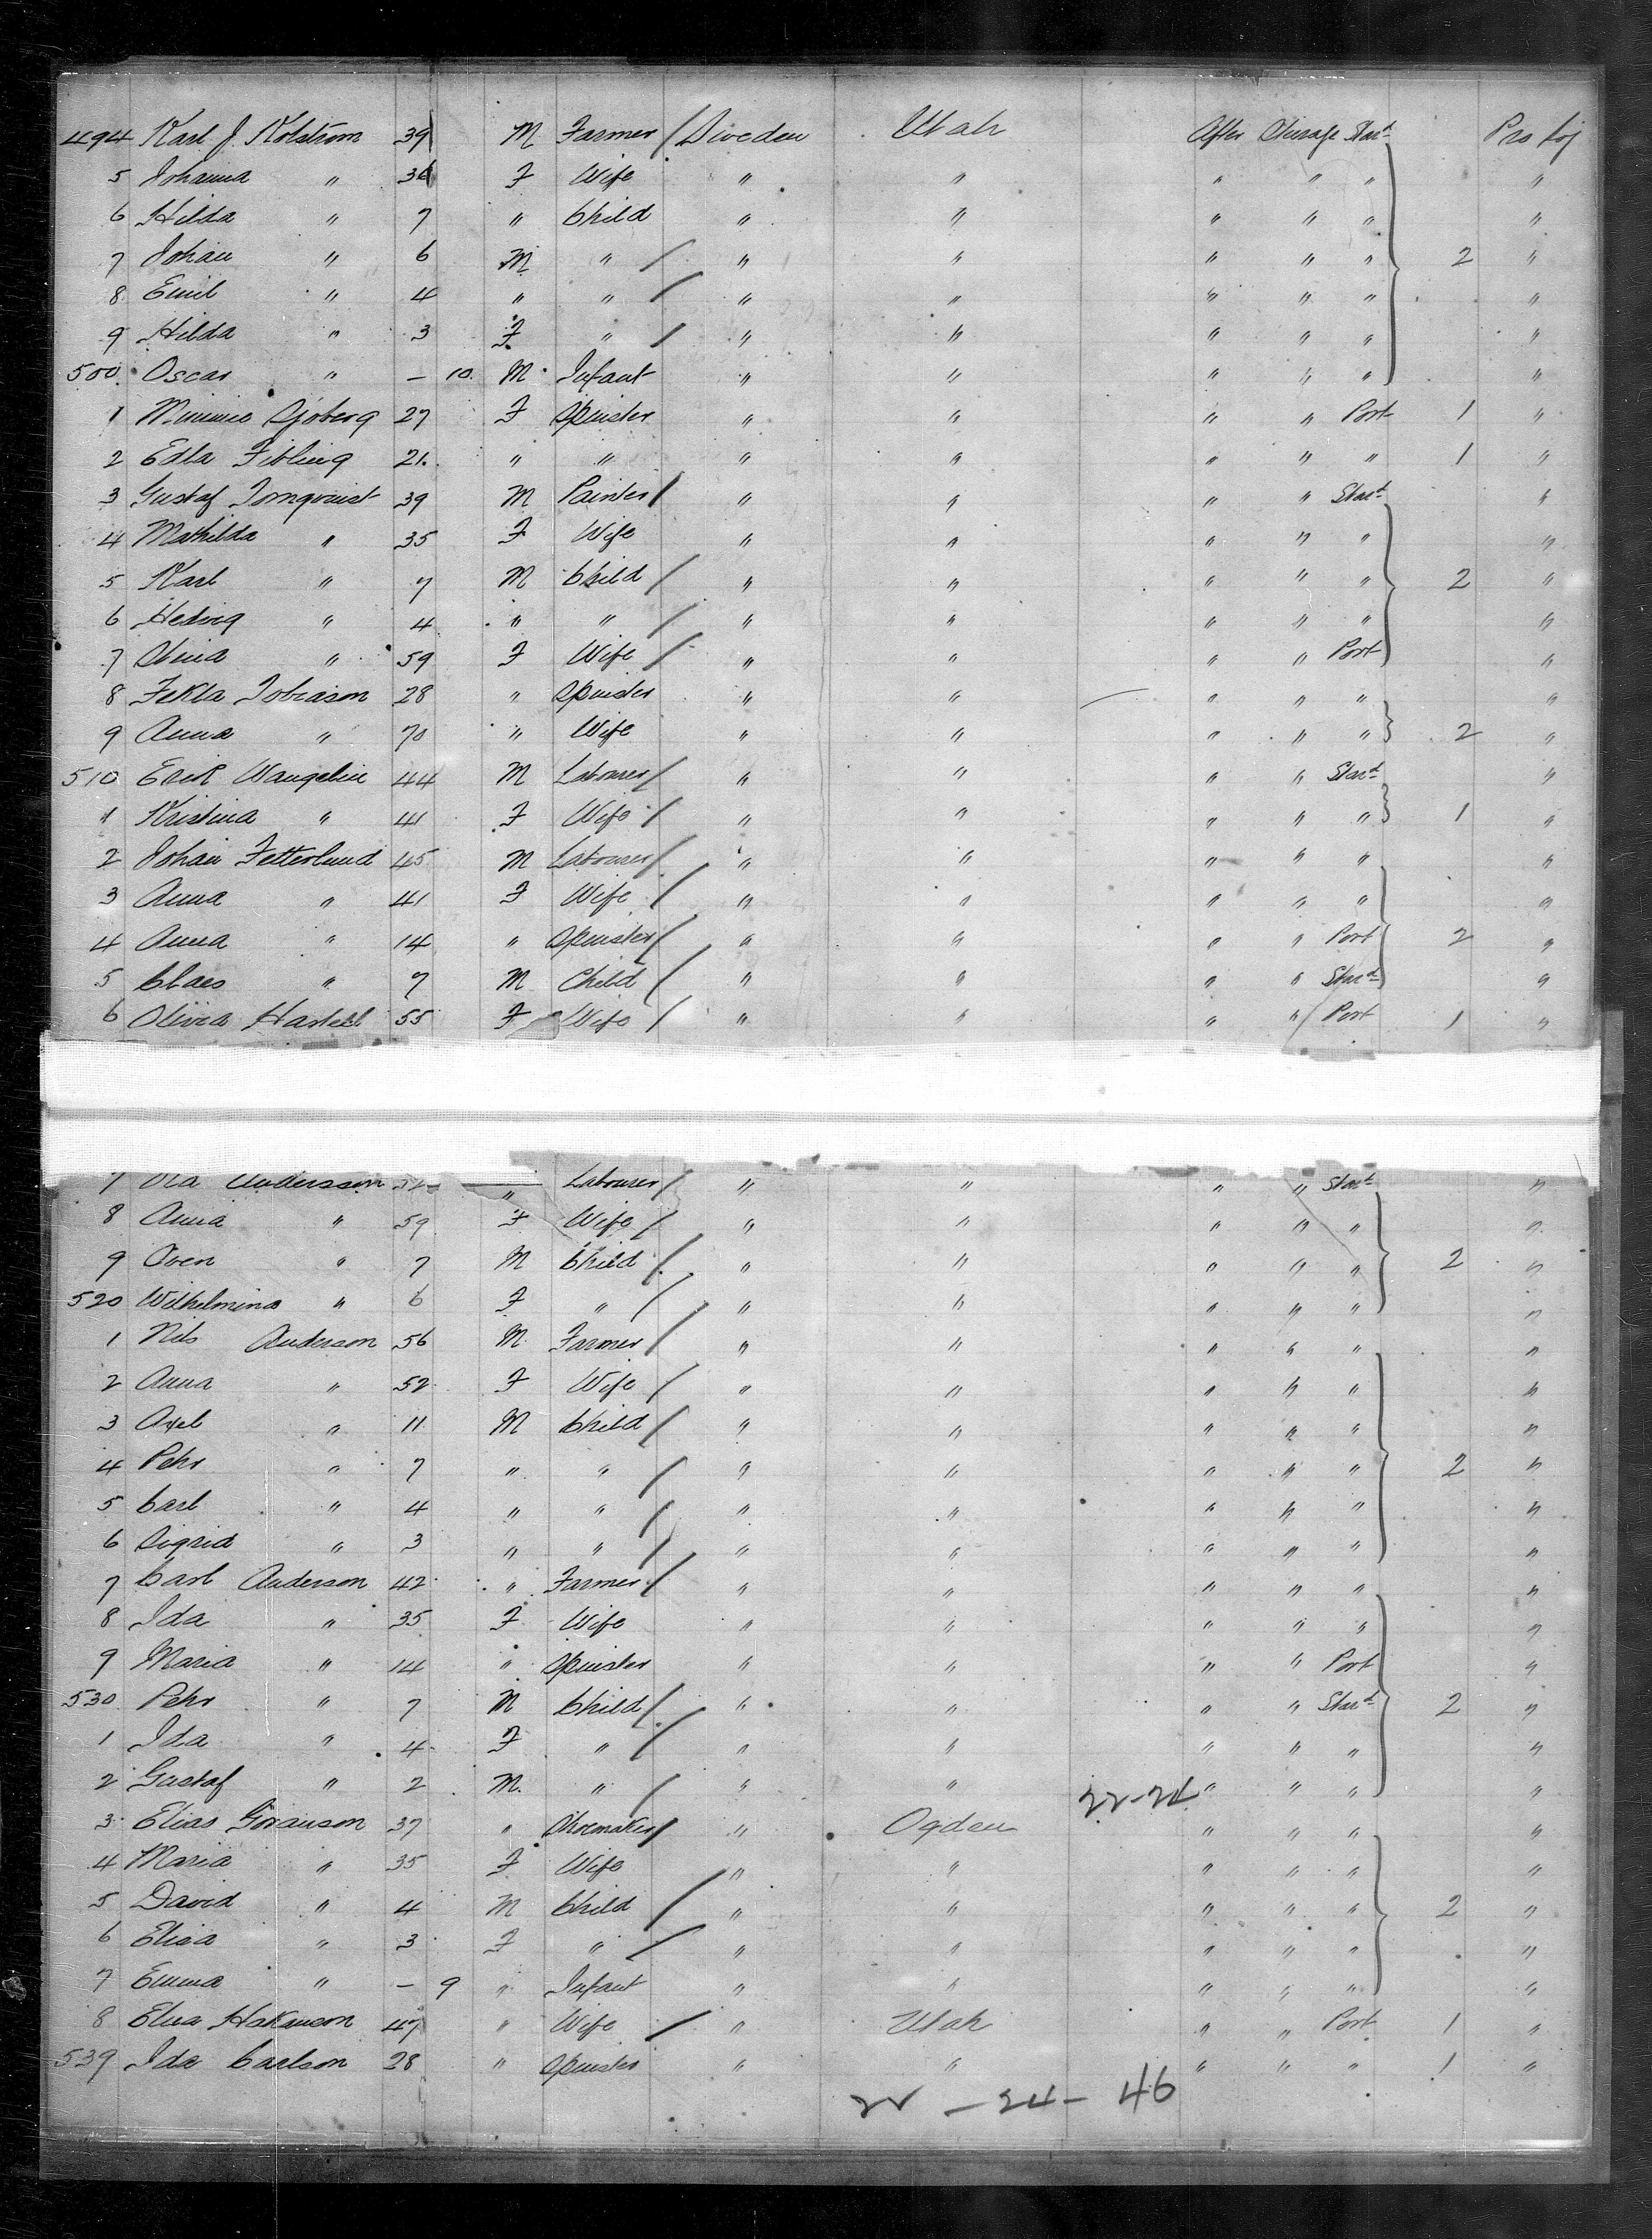 494 Karl J. Kolstrom 39 M Farmer / Sweden Utah After Steerage Starb Pro Soj
5 Johanna " 36 F Wife " " " " " "
6 Hilda " 7 " Child " " " " " "
7 Johan " 6 M " / " " " " " 2 "
8 Emil " 4 " " / " " " " " "
9 Hilda " 3 F " / " " " " " "
500 Oscar " – 10 M Infant " " " " " "
1 Minnie Sjoberg 27 F Spinster " " " " Port 1 "
2 Edla Fibling 21 " " " " " " " 1 "
3 Gustaf Tornqvist 39 M Painter / " " " " Starb "
4 Mathilda " 35 F Wife " " " " " "
5 Karl " 7 M Child / " " " " " 2 "
6 Hedvig " 4 " " / " " " " " "
7 Stina " 59 F Wife / " " " " Port "
8 Tekla Tobiason 28 " Spinster " " " " " "
9 Anna " 70 " Wife " " " " " 2 "
510 Erik Wangelin 44 M Labourer / " " " " Starb "
1 Kristina " 41 F Wife / " " " " " 1 "
2 Johan Zetterlund 45 M Labourer / " " " " " "
3 Anna " 41 F Wife / " " " " " "
4 Anna " 14 " Spinster / " " " " Port 2 "
5 Claes " 7 M Child / " " " " Starb "
6 Olivia 55 F Wife / " " " " Port 1 "
7 Ola Andersson " Labourer / " " " " Starb "
8 Anna " 59 F Wife / " " " " " "
9 Sven " 7 M Child / " " " " " 2 "
520 Wilhelmina " 6 F " / " " " " " "
1 Nils Anderson 56 M Farmer / " " " " " "
2 Anna " 52 F Wife / " " " " " "
3 Axel " 11 M Child / " " " " " "
4 Pehr " 7 " " / " " " " " 2 "
5 Carl " 4 " " / " " " " " "
6 Sigrid " 3 " " / " " " " " "
7 Carl Anderson 42 " Farmer / " " " " " "
8 Ida " 35 F Wife " " " " " "
9 Maria " 14 " Spinster " " " " Port "
530 Pehr " 7 M Child / " " " " Starb 2 "
1 Ida " 4 F " / " " " " " "
2 Gustaf " 2 M " / " " 22-24 " " " "
3 Elias Goranson 37 " Shoemaker / " Ogden " " " "
4 Maria " 35 F Wife " " " " " "
5 David " 4 M Child / " " " " " 2 "
6 Elisa " 3 F " / " " " " " "
7 Emma " – 9 " Infant " " " " " "
8 Elna Hakanson 47 " Wife / " Utah " " Port 1 "
539 Ida Carlson 28 " Spinster " " " " " 1 "
22 – 24 – 46